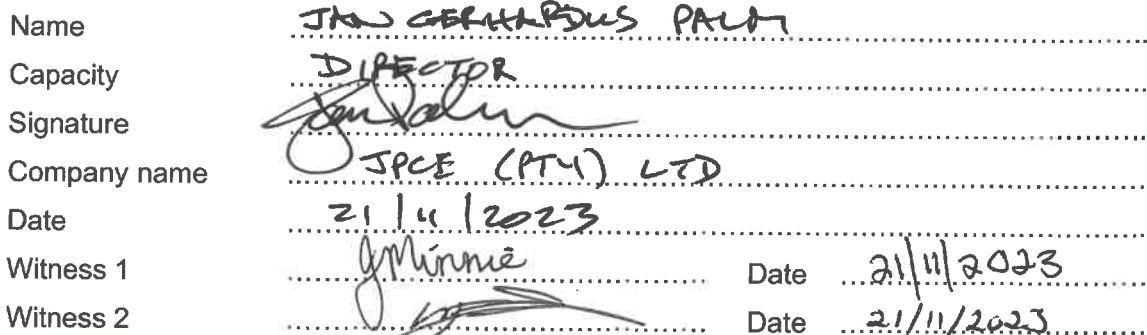 Name JAN GERHARDUS PALM
Capacity DIRECTOR
Signature Jan Palm
Company name JPCE (PTY) LTD
Date 21/11/2023
Witness 1 JMinnie Date 21/11/2023
Witness 2 Date 21/11/2023